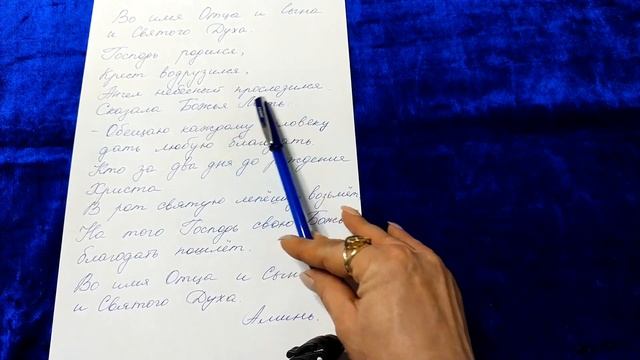 Во имя Отца и Сына
и Святого Духа.
Господь родился,
Крест водрузился,
Ангел небесный прослезился.
Сказала Божья Мать:
- Обещаю каждому человеку
дать любую благодать
Кто за два дня до рождения
Христа
В рот святую лепёшку возьмёт
На того Господь свою Божью
благодать пошлёт.
Во имя Отца и Сына
и Святого Духа.
Аминь.